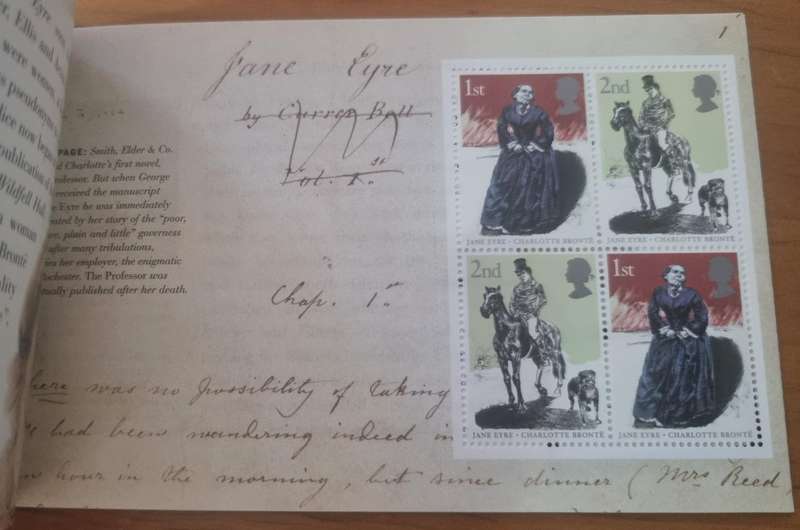 were women
pseudonyms
publication of
Wildfell Hall
woman
Brontë
PAGE: Smith, Elder & Co.
Charlotte's first novel,
Professor. But when George
received the manuscript
EYRE he was immediately
by her story of the "poor,
plain and little" governess
after many tribulations,
her employer, the enigmatic
Rochester. The Professor was
published after her death.
1
Jane Eyre
by Currer Bell
Vol. 1.st
Chap. 1st
There was no possibility of taking
had been wandering indeed in
hour in the morning, but since dinner (Mrs Reed
1st
JANE EYRE · CHARLOTTE BRONTË
2nd
JANE EYRE · CHARLOTTE BRONTË
2nd
JANE EYRE · CHARLOTTE BRONTË
1st
JANE EYRE · CHARLOTTE BRONTË